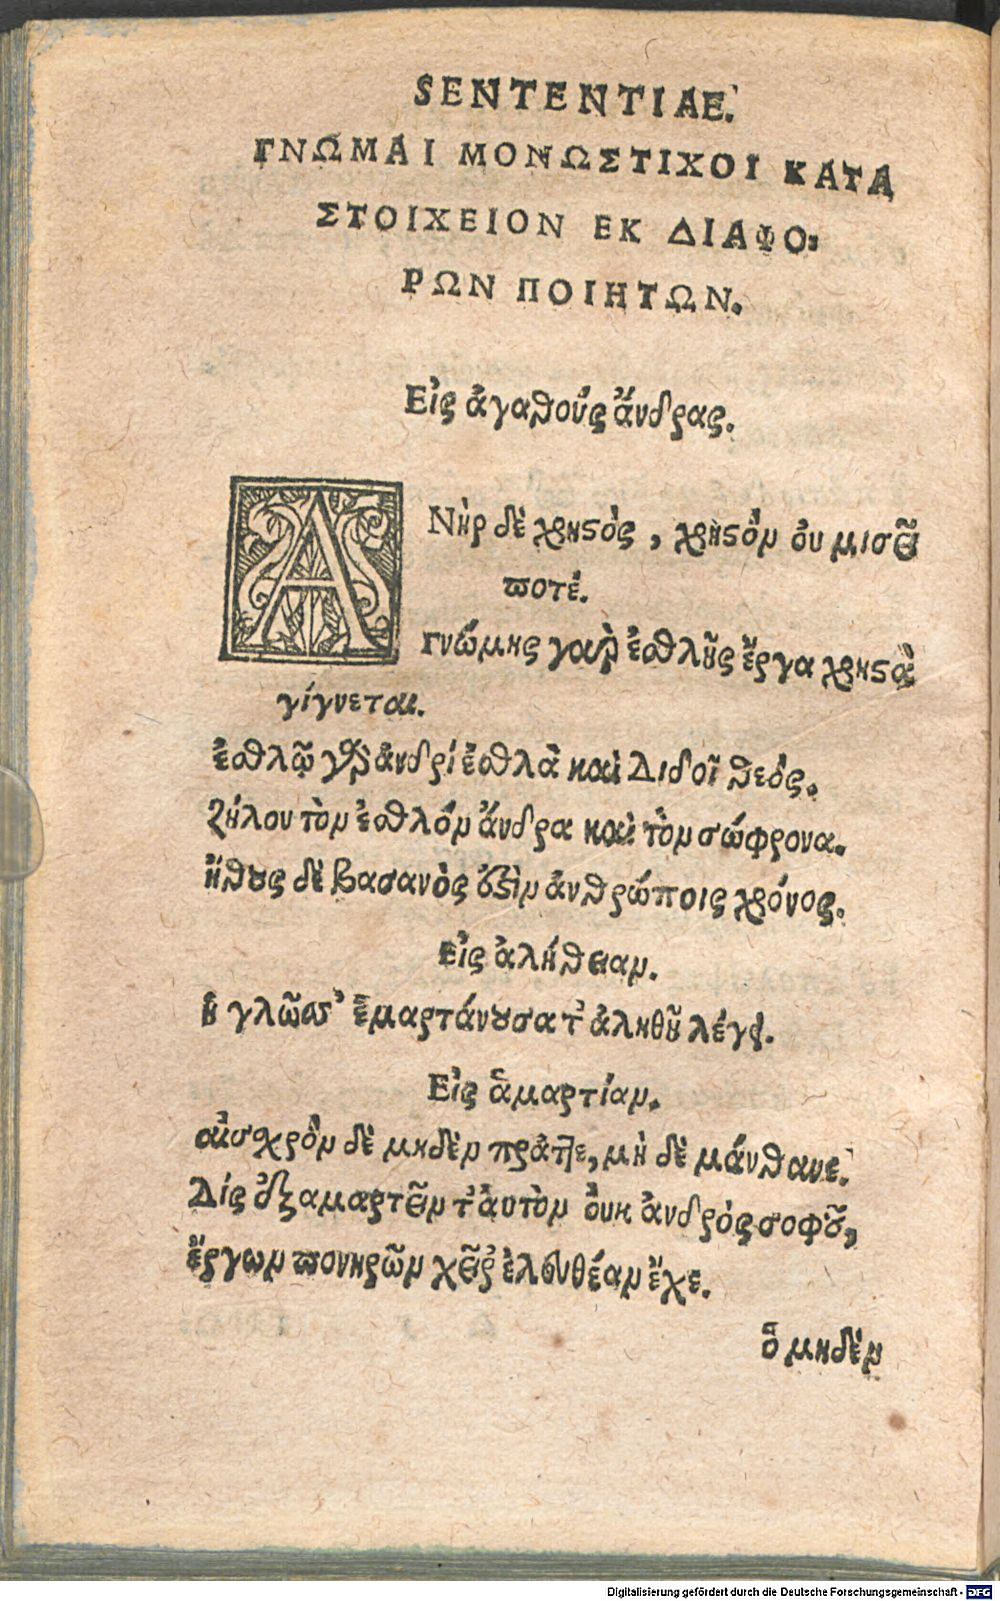 SENTENTIAE.
ΓΝΩΜΑΙ ΜΟΝΩΣΤΙΧΟΙ ΚΑΤΑ
ΣΤΟΙΧΕΙΟΝ ΕΚ ΔΙΑΦΟ:
ΡΩΝ ΠΟΙΗΤΩΝ.
Εἰς ἀγαθοὺς ἄνδρας.
ΑΝὴρ δὲ χρηστὸς, χρηστὸν ὀυ μισεῖ
ποτέ.
γνώμης γαὶρ ἐσθλῆς ἔργα χρηστὰ
γίγνεται.
ἐσθλῷ γὰρ ἀνδρί ἐσθλὰ καὶ Διδοῖ θεός.
Ζήλου τὸν ἐσθλὸν ἄνδρα καὶ τὸν σώφρονα.
ἤθους δὲ βασανὸς ἐστὶν ἀνθρώποις χρόνος.
Εἰς ἀλήθειαν.
ἡ γλῶσσ' ἁμαρτάνουσα τ' ἀληθῆ λέγει.
Εἰς ἁμαρτίαν.
αἰσχρὸν δὲ μηδὲν πρᾶττε, μὴ δὲ μάνθανε.
Δίς ἐξαμαρτεῖν τ' ἀυτὸν ὀυκ ἀνδρός σοφοῦ,
ἔργων πονηρῶν χεῖρ' ἐλευθέραν ἔχε.
ὁ μηδὲν
Digitalisierung gefördert durch die Deutsche Forschungsgemeinschaft - DFG